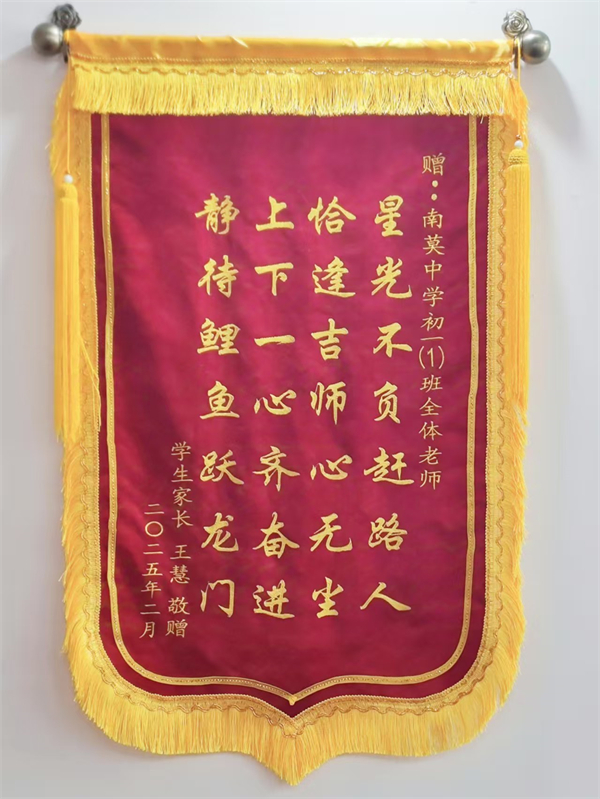 赠：南莫中学初一(1)班全体老师
星光不负赶路人
恰逢吉师心无尘
上下一心齐奋进
静待鲤鱼跃龙门
学生家长 王慧 敬赠
二〇二五年二月